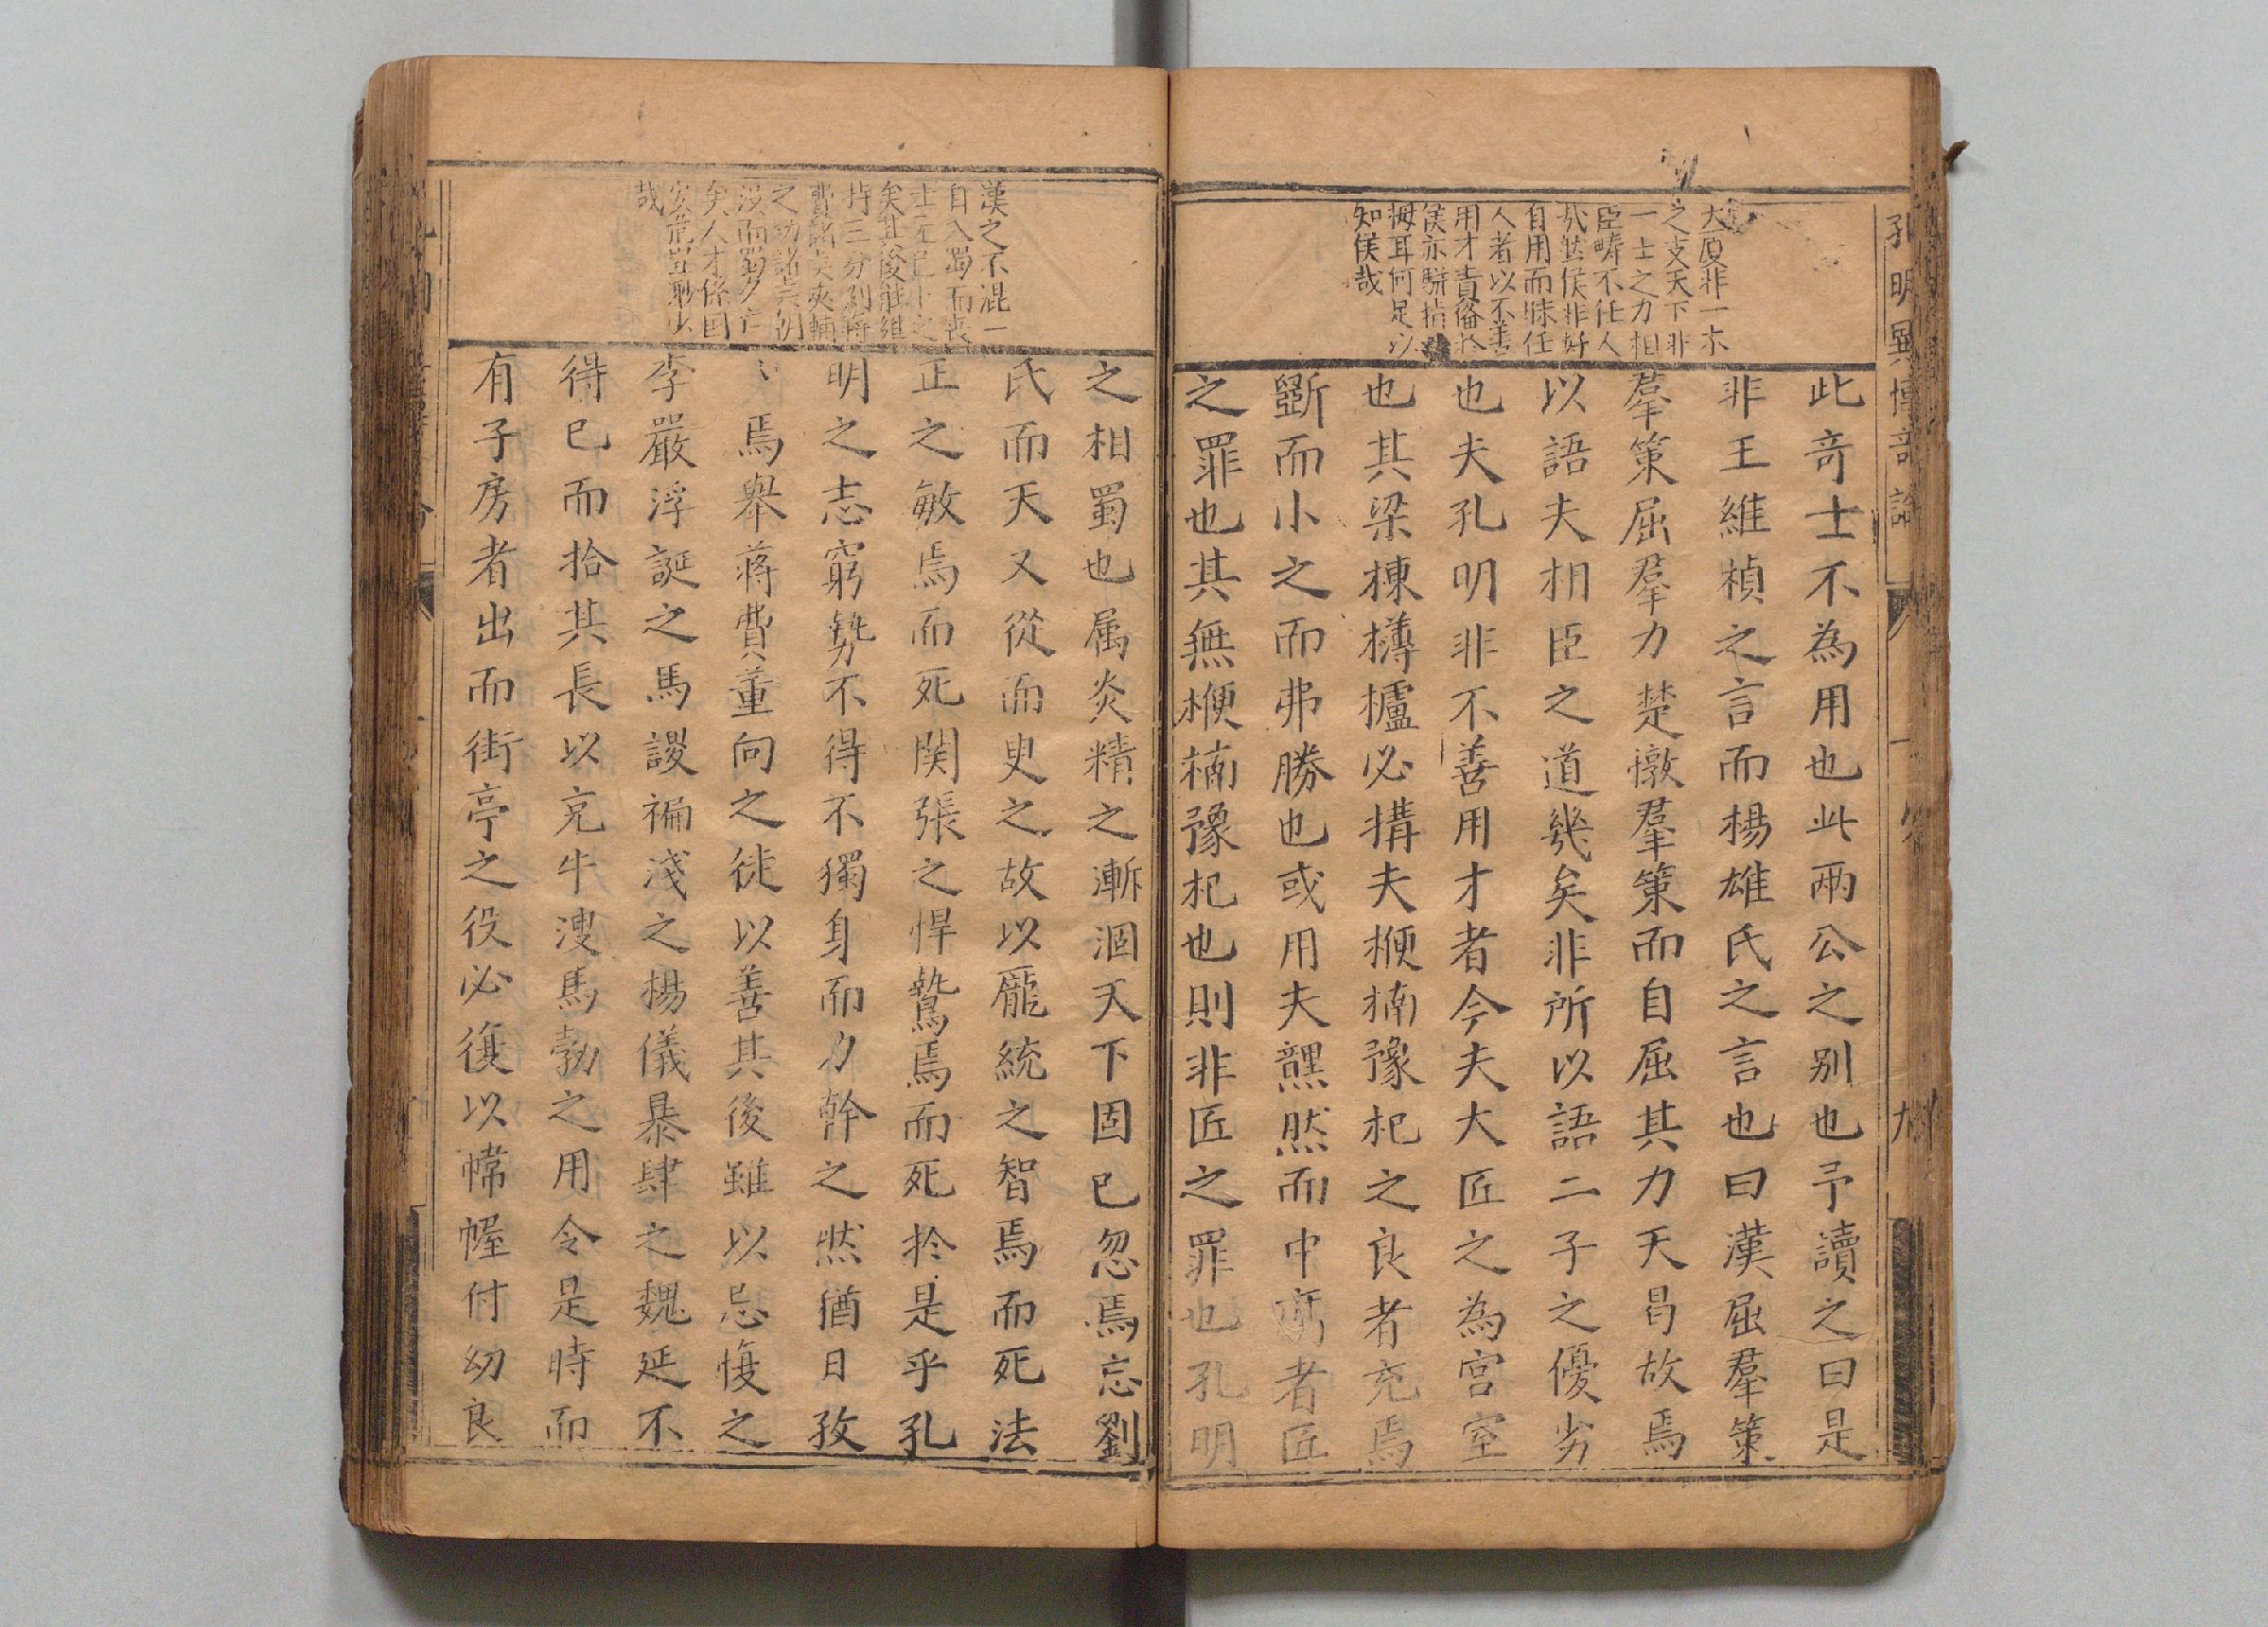 孔明異傳竒論
大厦非一木
之支天下非
一士之力相
臣疇不任人
哉然侯非好
自用而昧任
人者以不善
用才責俻於
侯亦駢拇
拇耳何足以
知侯哉
此竒士不為用也此兩公之别也予讀之曰是
非王維楨之言而楊雄氏之言也曰漢屈羣策
羣策屈羣力楚憞羣策而自屈其力天曷故焉
以語夫相臣之道幾矣非所以語二子之優劣
也夫孔明非不善用才者今夫大匠之為宮室
也其梁棟欂櫨必搆夫楩楠豫杞之良者充焉
斵而小之而弗勝也或用夫然而中者匠
之罪也其無楩楠豫杞也則非匠之罪也孔明
漢之不混一
自入蜀而喪
士元已卜之
矣其後維
持三分則蔣
費諸夾輔
之功諸
沒而蜀亡
矣人才係囯
安危豈
哉
之相蜀也属炎精之漸涸天下固已忽焉忘劉
氏而天又從而臾之故以龎統之智焉而死法
正之敏焉而死関張之悍鷙焉而死於是乎孔
明之志窮勢不得不獨身而力幹之然猶日孜
〻焉舉蔣費董向之徒以善其後雖以忌愎之
李嚴浮誕之馬謖褊淺之楊儀暴肆之魏延不
得已而拾其長以充牛溲馬勃之用令是時而
有子房者出而街亭之役必復以幃幄付幼良